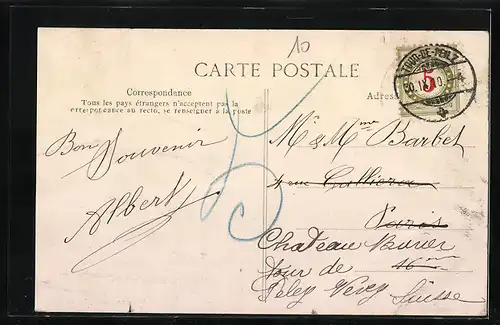 10
CARTE POSTALE
Correspondance
Tous les pays étrangers n'acceptent pas la
correspondance au recto, se renseigner à la poste
Adres
TOUR-DE-PEILZ
30. IX. 10.
5
5
Bon Souvenir
Albert
Mr & Mme Barbet
4 rue Galliera
Paris
16me
Chateau Burier
Tour de
Peley Vevey Suisse